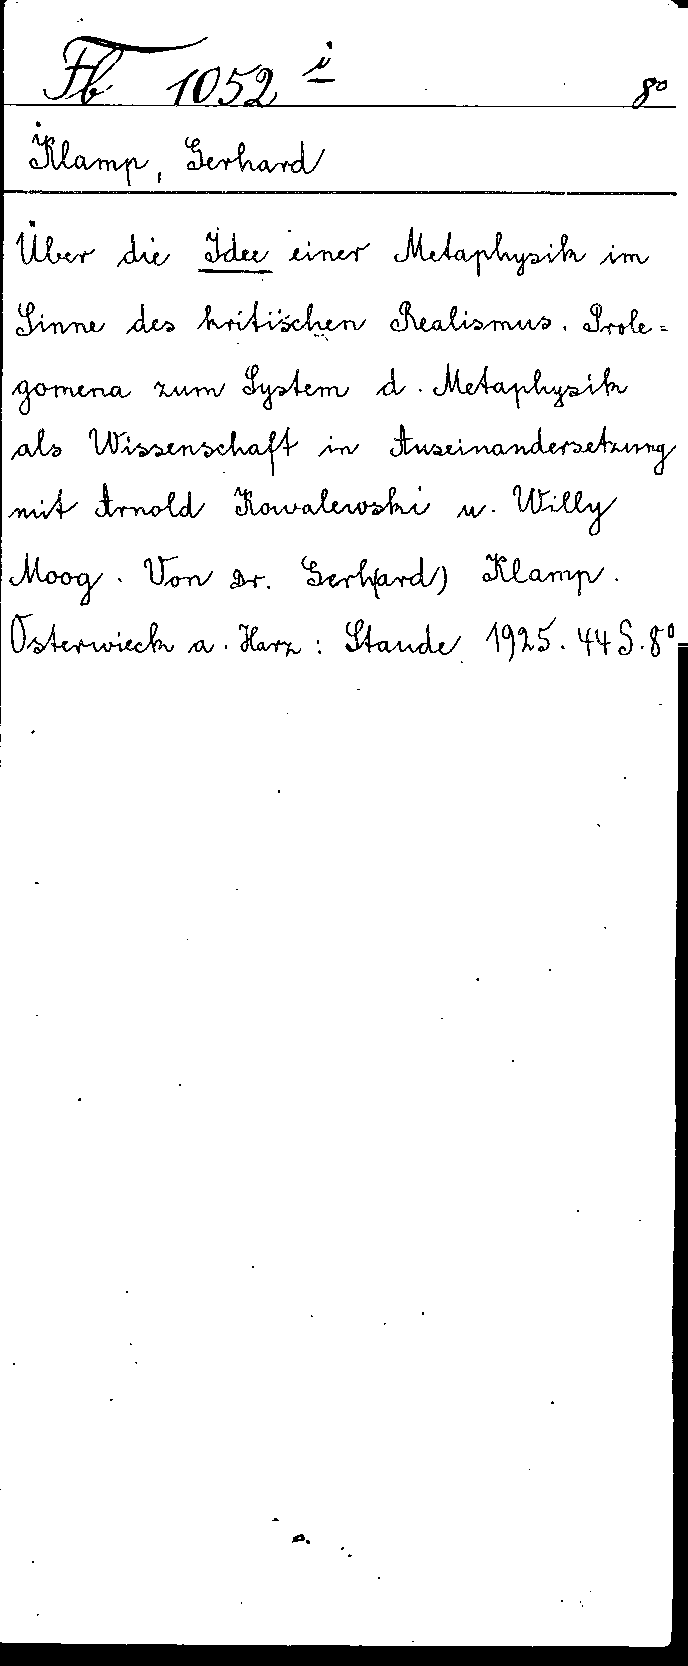 Fb 1052 i 8°
Klamp, Gerhard
Über die Idee einer Metaphysik im
Sinne des kritischen Realismus. Prole=
gomena zum System d. Metaphysik
als Wissenschaft in Auseinandersetzung
mit Arnold Kowalewski u. Willy
Moog. Von Dr. Gerh(ard) Klamp.
Osterwieck a. Harz: Staude 1925. 44 S. 8°